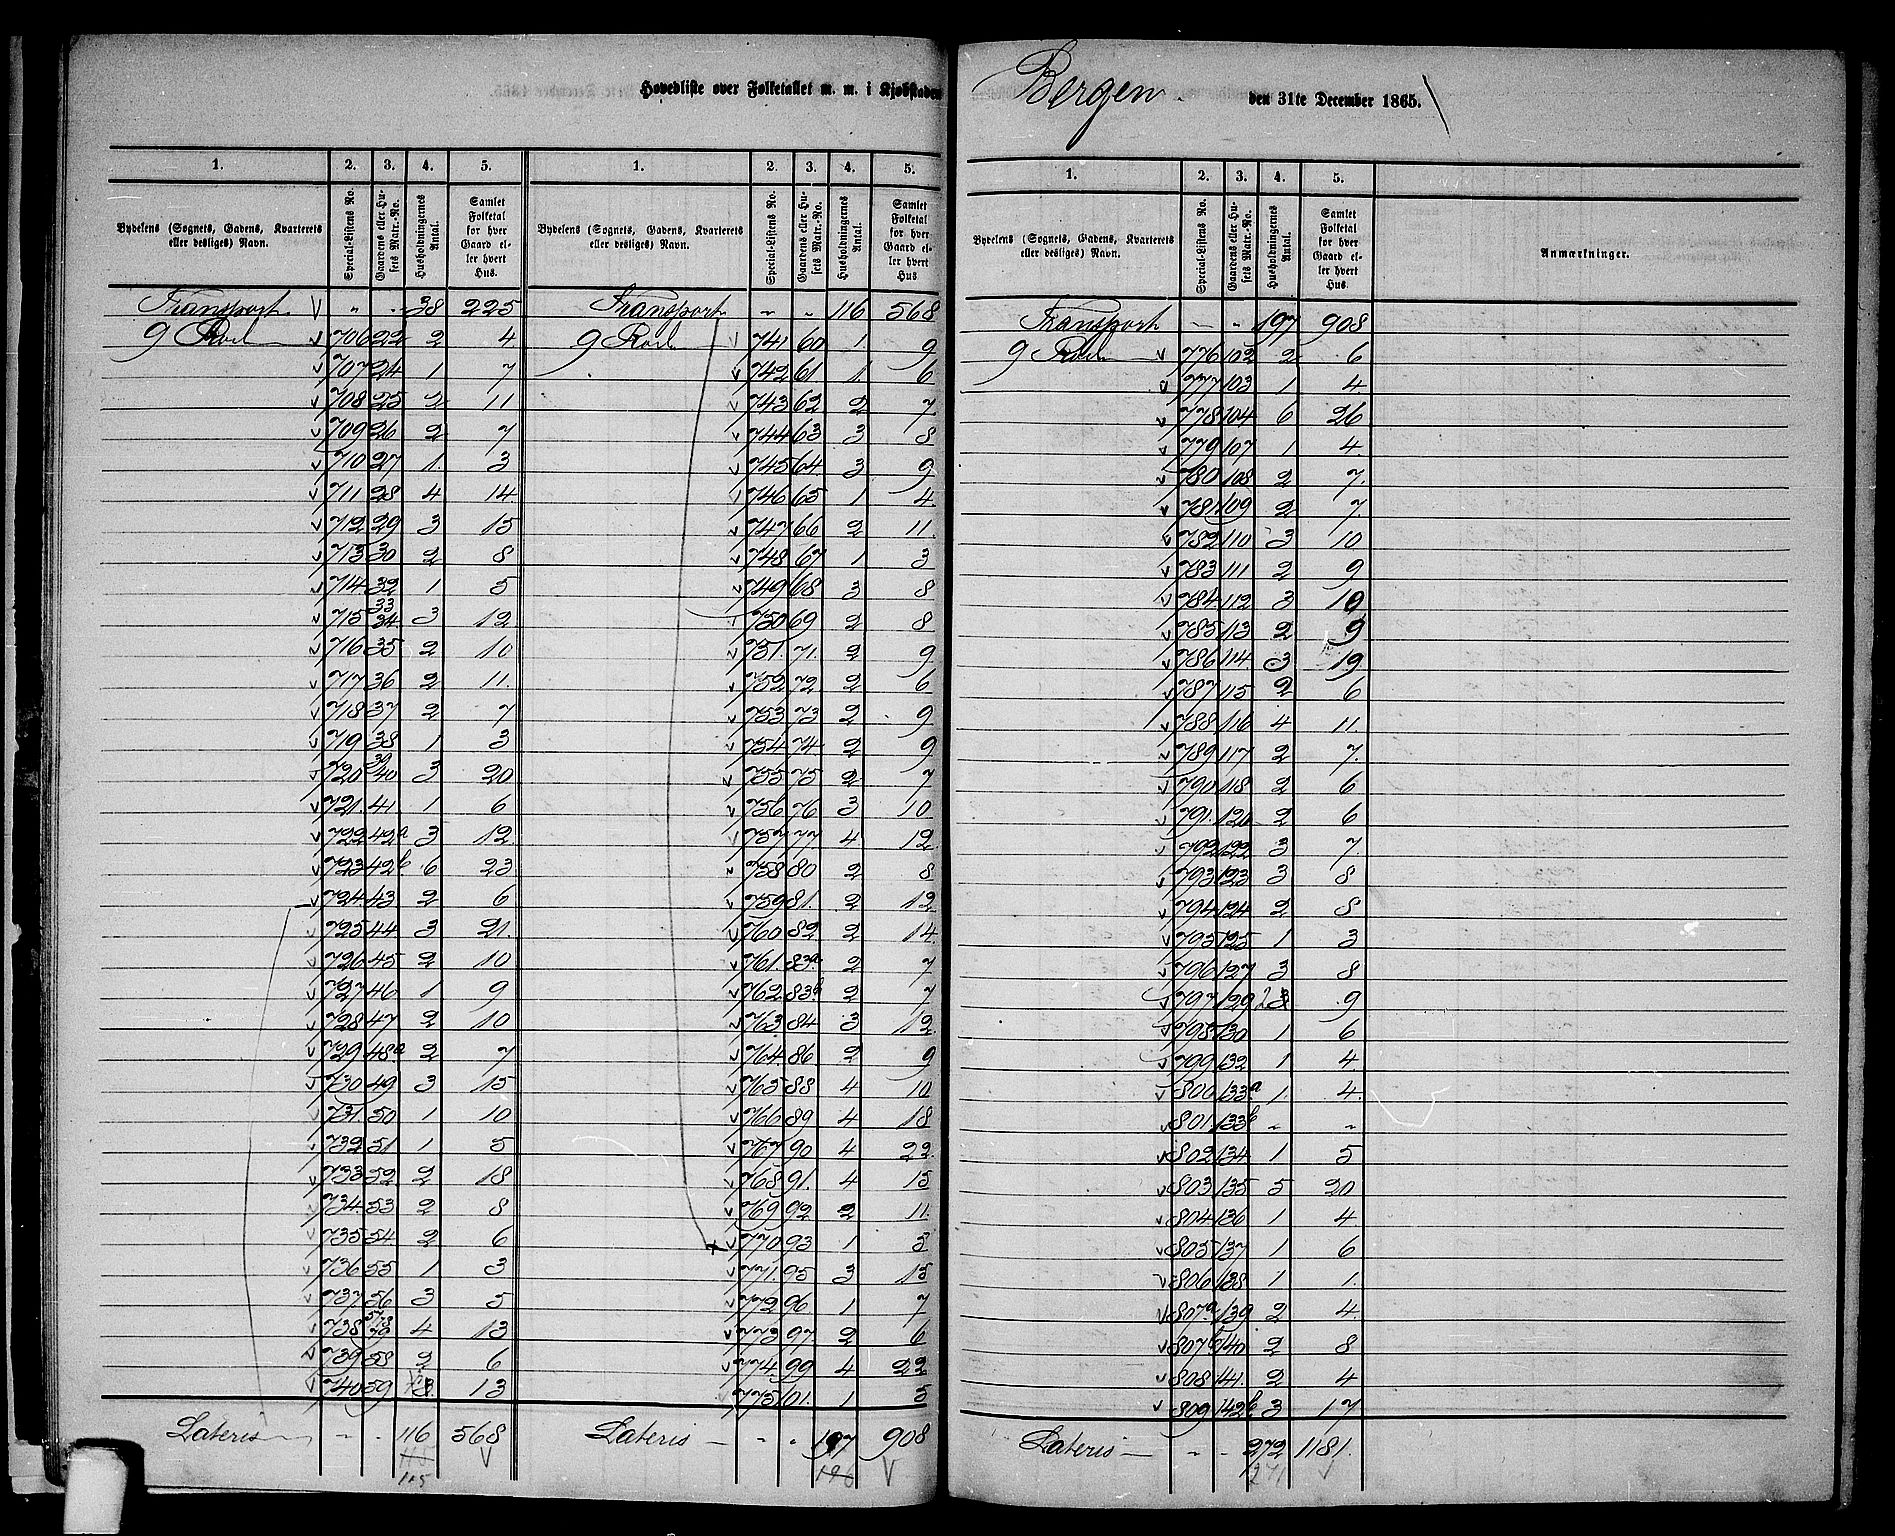 Hovedliste over Folketallet m. m. i Kjøbstaden Bergen den 31te December 1865.
1. 2. 3. 4. 5.
Bydelens (Sognets, Gadens, Kvarterets eller desliges) Navn. Special-Listens No. Gaardens eller Husets Matr.-No. Husholdningernes Antal. Samlet Folketal for hver Gaard eller hvert Hus.
Transport " " 38 225
9 Rode 706 22 2 4
707 24 1 7
708 25 2 11
709 26 2 7
710 27 1 3
711 28 4 14
712 29 3 15
713 30 2 8
714 32 1 5
715 33 34 3 12
716 35 2 10
717 36 2 11
718 37 2 7
719 38 1 3
720 39 40 3 20
721 41 1 6
722 42a 3 12
723 42b 6 23
724 43 2 6
725 44 3 21
726 45 2 10
727 46 1 9
728 47 2 10
729 48a 2 7
730 49 3 15
731 50 1 10
732 51 1 5
733 52 2 18
734 53 2 8
735 54 2 6
736 55 1 3
737 56 3 5
738 4 13
739 58 2 6
740 59 3 13
Lateris " " 116 568
115
115
1. 2. 3. 4. 5.
Bydelens (Sognets, Gadens, Kvarterets eller desliges) Navn. Special-Listens No. Gaardens eller Husets Matr.-No. Husholdningernes Antal. Samlet Folketal for hver Gaard eller hvert Hus
Transport " " 116 568
9 Rode 741 60 1 9
742 61 1 6
743 62 2 7
744 63 3 8
745 64 3 9
746 65 1 4
747 66 2 11
748 67 1 3
749 68 3 8
750 69 2 8
751 71 2 9
752 72 2 6
753 73 2 9
754 74 2 9
755 75 2 7
756 76 3 10
757 77 4 12
758 80 2 8
759 81 2 12
760 82 2 14
761 83a 2 7
762 83b 2 7
763 84 3 12
764 86 2 9
765 88 4 10
766 89 4 18
767 90 4 22
768 91 4 15
769 92 2 11
770 93 1 5
771 95 3 15
772 96 1 7
773 97 2 6
774 99 4 22
775 101 1 5
Lateris " " 197 908
196
1. 2. 3. 4. 5.
Bydelens (Sognets, Gadens, Kvarterets eller desliges) Navn. Special-Listens No. Gaardens eller Husets Matr.-No. Husholdningernes Antal. Samlet Folketal for hver Gaard eller hvert Hus. Anmærkninger.
Transport " " 197 908
9 Rode 776 102 2 6
777 103 1 4
778 104 6 26
779 107 1 4
780 108 2 7
781 109 2 7
782 110 3 10
783 111 2 9
784 112 3 10
785 113 2 9
786 114 3 19
787 115 2 6
788 116 4 11
789 117 2 7
790 118 2 6
791 120 2 6
792 122 3 7
793 123 3 8
794 124 2 8
795 125 1 3
796 127 3 8
797 129 2 3 9
798 130 1 6
799 132 1 4
800 133a 1 4
801 133b " "
802 134 1 5
803 135 5 20
804 136 1 4
805 137 1 6
806 138 1 1
807a 139 2 4
807b 140 2 8
808 141 2 4
809 142b 3 17
Lateris " " 272 1181
271